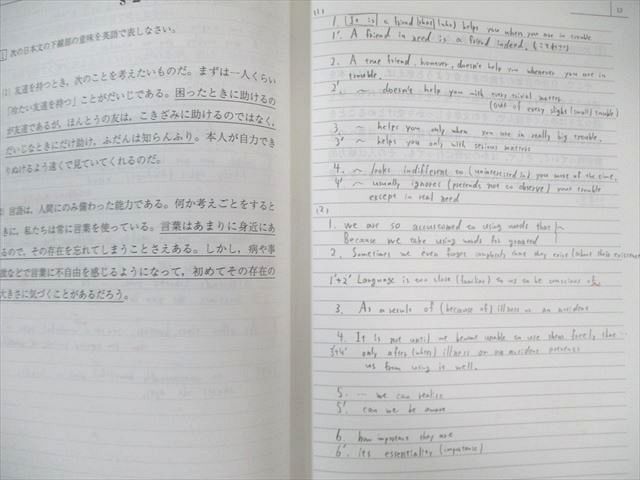 1 次の日本文の下線部の意味を英語で表しなさい。
(1) 友達を持つとき，次のことを考えたいものだ。まずは一人くらい
「冷たい友達を持つ」ことがだいじである。困ったときに助けるの
が友達であるが，ほんとうの友は，こきざみに助けるのではなく，
だいじなときにだけ助け，ふだんは知らんふり。本人が自力でき
りぬけるよう遠くで見ていてくれるのだ。
言語は，人間にのみ備わった能力である。何か考えごとをすると
きに，私たちは常に言葉を使っている。言葉はあまりに身近にあ
るので，その存在を忘れてしまうことさえある。しかし，病や事
故などで言葉に不自由を感じるようになって，初めてその存在の
大きさに気づくことがあるだろう。
13
(1)
1. It is a friend (that / who) helps you when you are in trouble.
1'. A friend in need is a friend indeed. (ことわざ)
2. A true friend, however, doesn't help you whenever you are in
trouble.
2'. 〜 doesn't help you with every trivial matter.
(out of every slight (small) trouble)
3. 〜 helps you only when you are in really big trouble.
3' 〜 helps you only with serious matters
4. 〜 looks indifferent to (uninterested in) you most of the time.
4' 〜 usually ignores (pretends not to observe) your trouble
except in real need
(2)
1. we are so accustomed to using words that
Because we take using words for granted
2. Sometimes we even forget completely that they exist (about their existence)
1'+2' Language is too close (familiar) to us to be conscious of.
3. As a result of (because of) illness or an accident
4. It is not until we become unable to use them freely that …
3'+4' only after (when) illness or an accident prevents
us from using it well.
5. … we can realize
5'. can we be aware
6. how important they are
6'. its essentiality (importance)